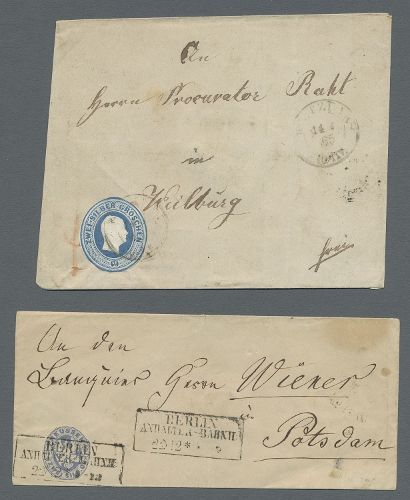 An
Herrn Procurator Raht
in
Weilburg
ZWEI SILBER GROSCHEN
WETZLAR
14
65
frei
An den
Banquier Herrn Wiener
in
Potsdam
BERLIN
ANHALTER-BAHNH.
22 12 *
BERLIN
ANHALTER-BAHNH.
22 12